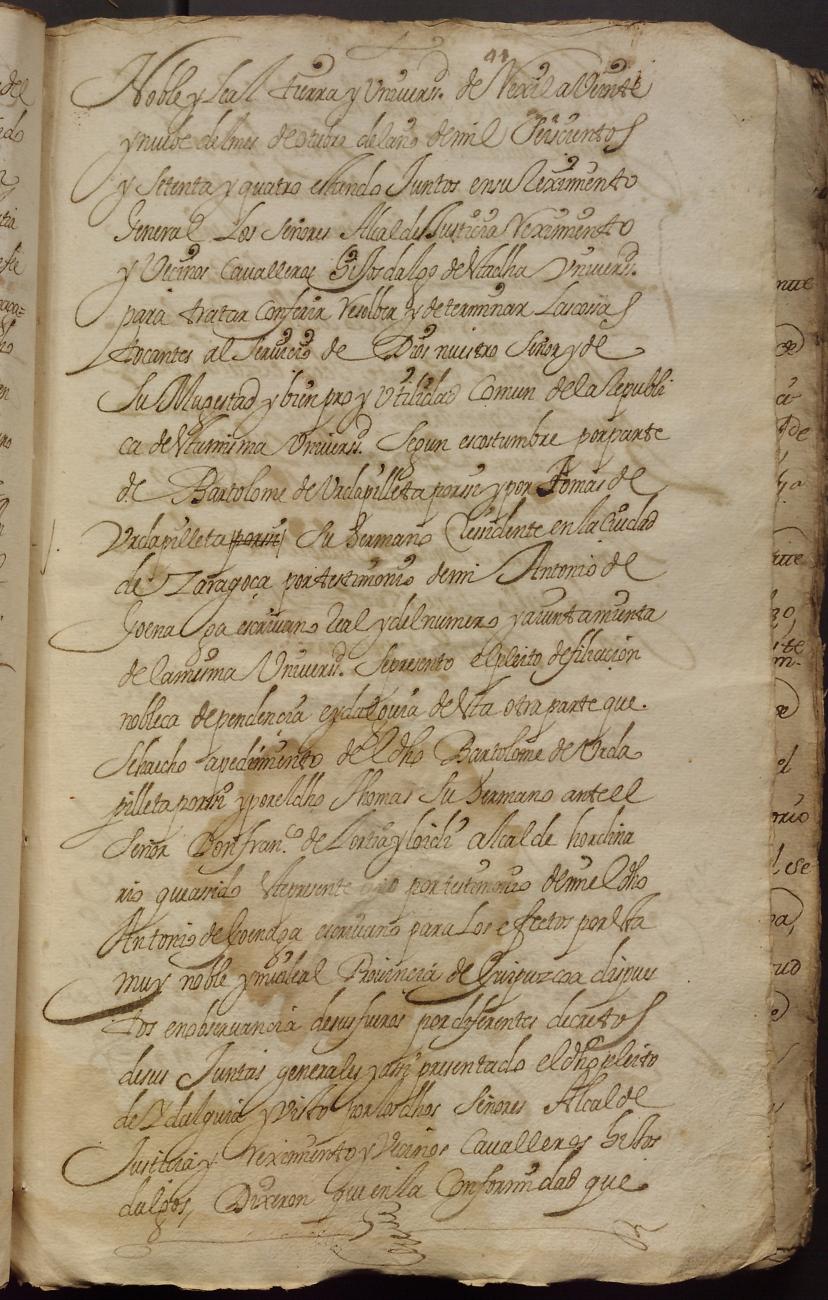 44
Noble y Leal tierra y Univers.d de Rexil a Veinte
y nuebe del mes de otubre del año de mil Seiscientos
y Setenta y quatro estando Juntos en su Reximiento
General Los Señores Alcalde Justicia Reximiento
y Vecinos Cavalleros hijosdalgo de Vta dha Univers.d
para tratar Conferir resolber y determinar Las cosas
tocantes al Servicio de Dios nuestro Señor y de
Su Magestad y bien pro y Utilidad Comun de la Republi
ca de Vta misma Univers.d Segun es costumbre por parte
de Bartolome de Urdapilleta por si y por Tomas de
Urdapilleta por si Su hermano Residente en la Ciudad
de Zaragoça por testimonio de mi Antonio de
Goenaga escrivano Real y del numero y ayuntamiento
de la misma Univers.d Se presento el pleito de filiacion
nobleca dependencia e ydalguia de Vta otra parte que
Se ha echo a pedimiento del dho Bartolome de Urda
pilleta por si y por el dho Thomas Su hermano ante el
Señor Don fran.co de alcalde hordina
rio que a sido por testimonio de mi el dho
Antonio de Goenaga escrivano para Los efectos por Vta
muy noble y muy leal Provincia de Guipuzcoa dispues
tos en observancia de sus fueros por diferentes decretos
de sus Juntas generales y assi presentado el dho pleito
de Ydalguia y Visto por los dhos Señores Alcalde
Justicia y Reximiento y Vecinos Cavalleros hijos
dalgos, Dixeron que en la Conformidad que